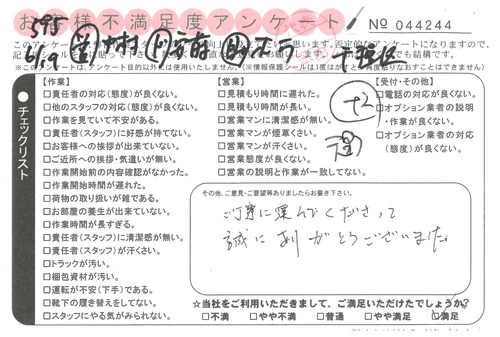 お客様不満足度アンケート
No 044244
595
6/9
チェックリスト
【作業】
□責任者の対応(態度)が良くない。
□他のスタッフの対応(態度)が良くない。
□作業を見ていて不安がある。
□責任者(スタッフ)に好感が持てない。
□お客様への挨拶が出来ていない。
□ご近所への挨拶・気遣いが無い。
□作業開始前の内容確認がなかった。
□作業開始時間が遅れた。
□荷物の取り扱いが雑である。
□お部屋の養生が出来ていない。
□作業時間が長すぎる。
□責任者(スタッフ)に清潔感が無い。
□責任者(スタッフ)が汗くさい。
□トラックが汚い。
□梱包資材が汚い。
□運転が不安(下手)である。
□靴下の履き替えをしてない。
□スタッフにやる気がみられない。
【営業】
□見積もり時間に遅れた。
□見積もり時間が長い。
□営業マンに清潔感が無い。
□営業マンが煙草くさい。
□営業マンが汗くさい。
□営業態度が良くない。
□営業の説明と作業が一致してない。
【受付・その他】
□電話の対応が良くない。
□オプション業者の説明
・作業が良くない。
□オプション業者の対応
(態度)が良くない。
その他、ご意見・ご要望等ありましたらお書き下さい。
ご丁寧に運んでくださって
誠にありがとうございました。
☆当社をご利用いただきまして、ご満足いただけたでしょうか?
□不満 □やや不満 □普通 □やや満足 □満足